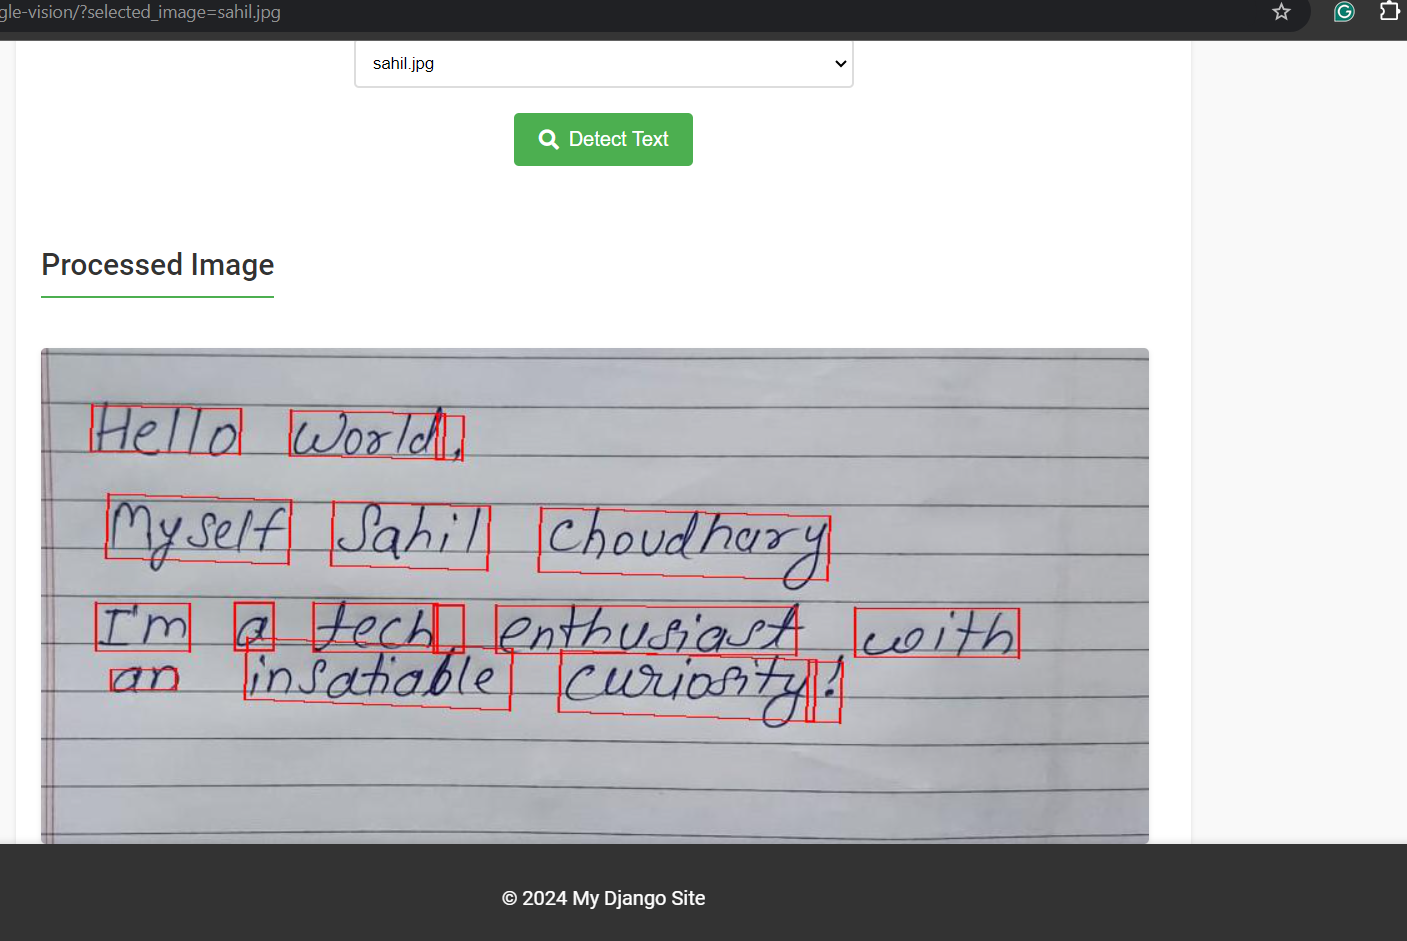 gle-vision/?selected_image=sahil.jpg
sahil.jpg
Detect Text
Processed Image
Hello World,
Myself Sahil Choudhary
I'm a tech enthusiast with
an insatiable curiosity!
© 2024 My Django Site